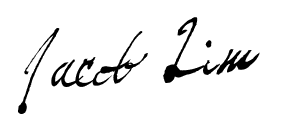 Jacob Lim